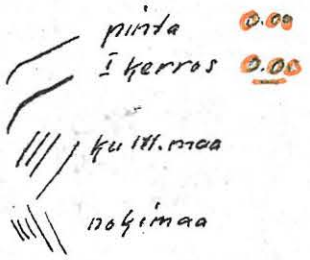 pinta 0.00
I kerros 0.00
kultt.maa
nokimaa